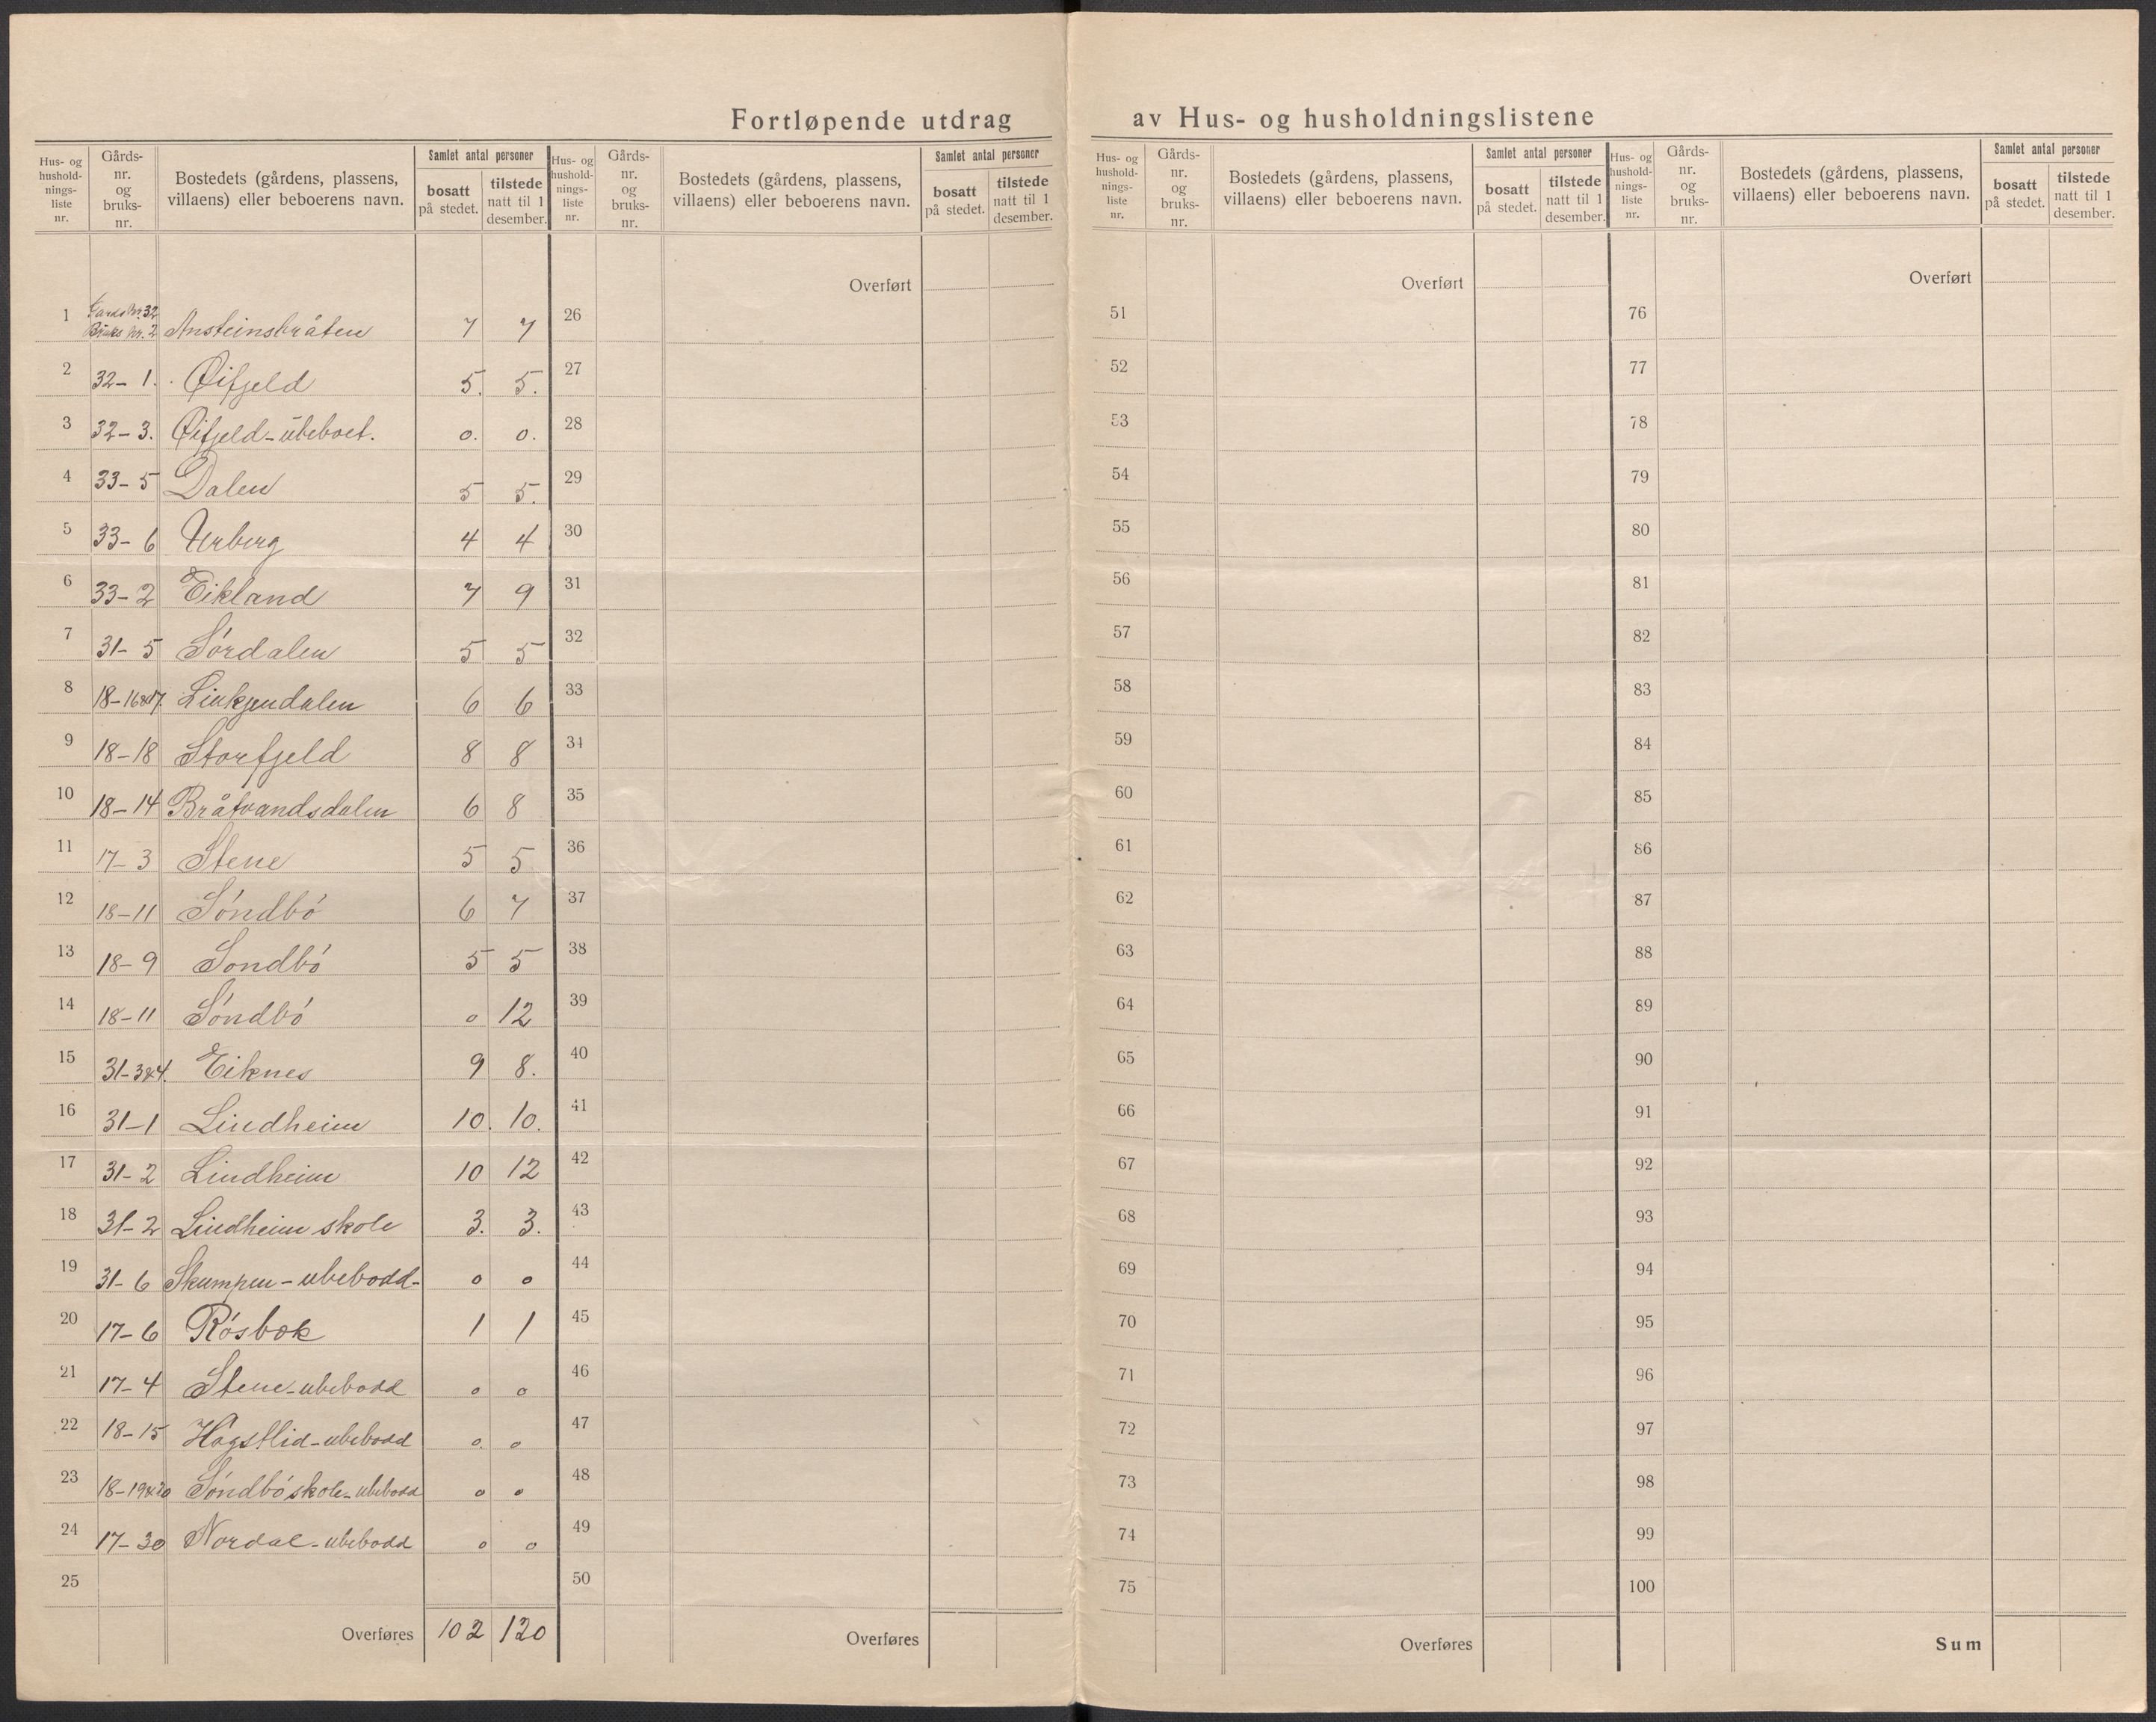 Fortløpende utdrag av Hus- og husholdningslistene
Hus- og hushold- nings- liste nr. | Gårds- nr. og bruks- nr. | Bostedets (gårdens, plassens, villaens) eller beboerens navn. | Samlet antal personer | bosatt på stedet. | tilstede natt til 1 desember.
Hus- og hushold- nings- liste nr. | Gårds- nr. og bruks- nr. | Bostedets (gårdens, plassens, villaens) eller beboerens navn. | Samlet antal personer | bosatt på stedet. | tilstede natt til 1 desember.
Hus- og hushold- nings- liste nr. | Gårds- nr. og bruks- nr. | Bostedets (gårdens, plassens, villaens) eller beboerens navn. | Samlet antal personer | bosatt på stedet. | tilstede natt til 1 desember.
Hus- og hushold- nings- liste nr. | Gårds- nr. og bruks- nr. | Bostedets (gårdens, plassens, villaens) eller beboerens navn. | Samlet antal personer | bosatt på stedet. | tilstede natt til 1 desember.
Overført Overført Overført
1 Gards Nr. 32 Bruks Nr. 2 Ansteinsbråten 7 7 26 51 76
2 32-1. Øifjeld 5. 5. 27 52 77
3 32-3. Øifjeld-ubeboet. 0. 0. 28 53 78
4 33-5 Dalen 5 5. 29 54 79
5 33-6 Urberg 4 4 30 55 80
6 33-2 Eikland 7 9 31 56 81
7 31-5 Sørdalen 5 5 32 57 82
8 18-16&17. Linkjendalen 6 6 33 58 83
9 18-18 Storfjeld 8 8 34 59 84
10 18-14 Bråtvandsdalen 6 8 35 60 85
11 17-3 Stene 5 5 36 61 86
12 18-11 Søndbø 6 7 37 62 87
13 18-9 Søndbø 5 5 38 63 88
14 18-11 Søndbø 0 12 39 64 89
15 31-3&4. Eiknes 9 8. 40 65 90
16 31-1 Lindheim 10. 10. 41 66 91
17 31-2 Lindheim 10 12 42 67 92
18 31-2 Lindheim skole 3. 3. 43 68 93
19 31-6 Skumpen-ubebodd- 0 0 44 69 94
20 17-6 Røsbek 1 1 45 70 95
21 17-4 Stene-ubebodd 0 0 46 71 96
22 18-15 Høgstlid-ubebodd 0. 0 47 72 97
23 18-19&20 Søndbø skole-ubebodd 0 0 48 73 98
24 17-30 Nordal-ubebodd 0 0 49 74 99
25 50 75 100
Overføres 102 120 Overføres Overføres Sum